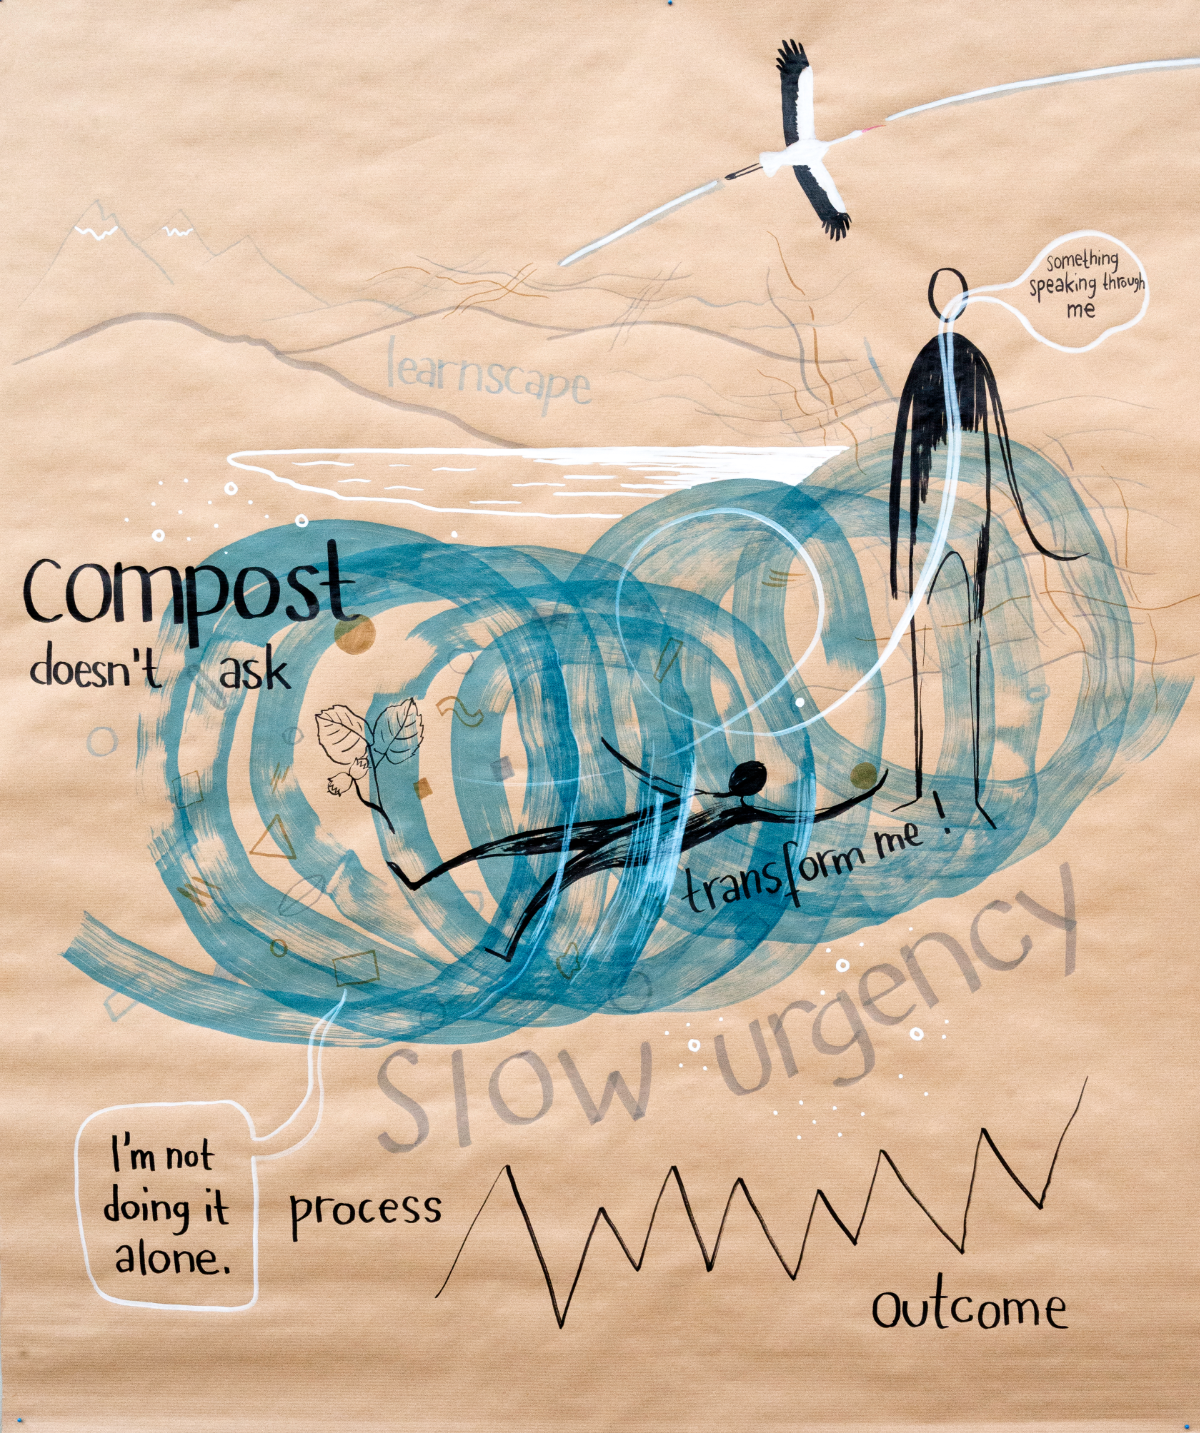 something
speaking through
me
learnscape
compost
doesn't ask
transform me!
Slow urgency
I'm not
doing it
alone.
process
outcome